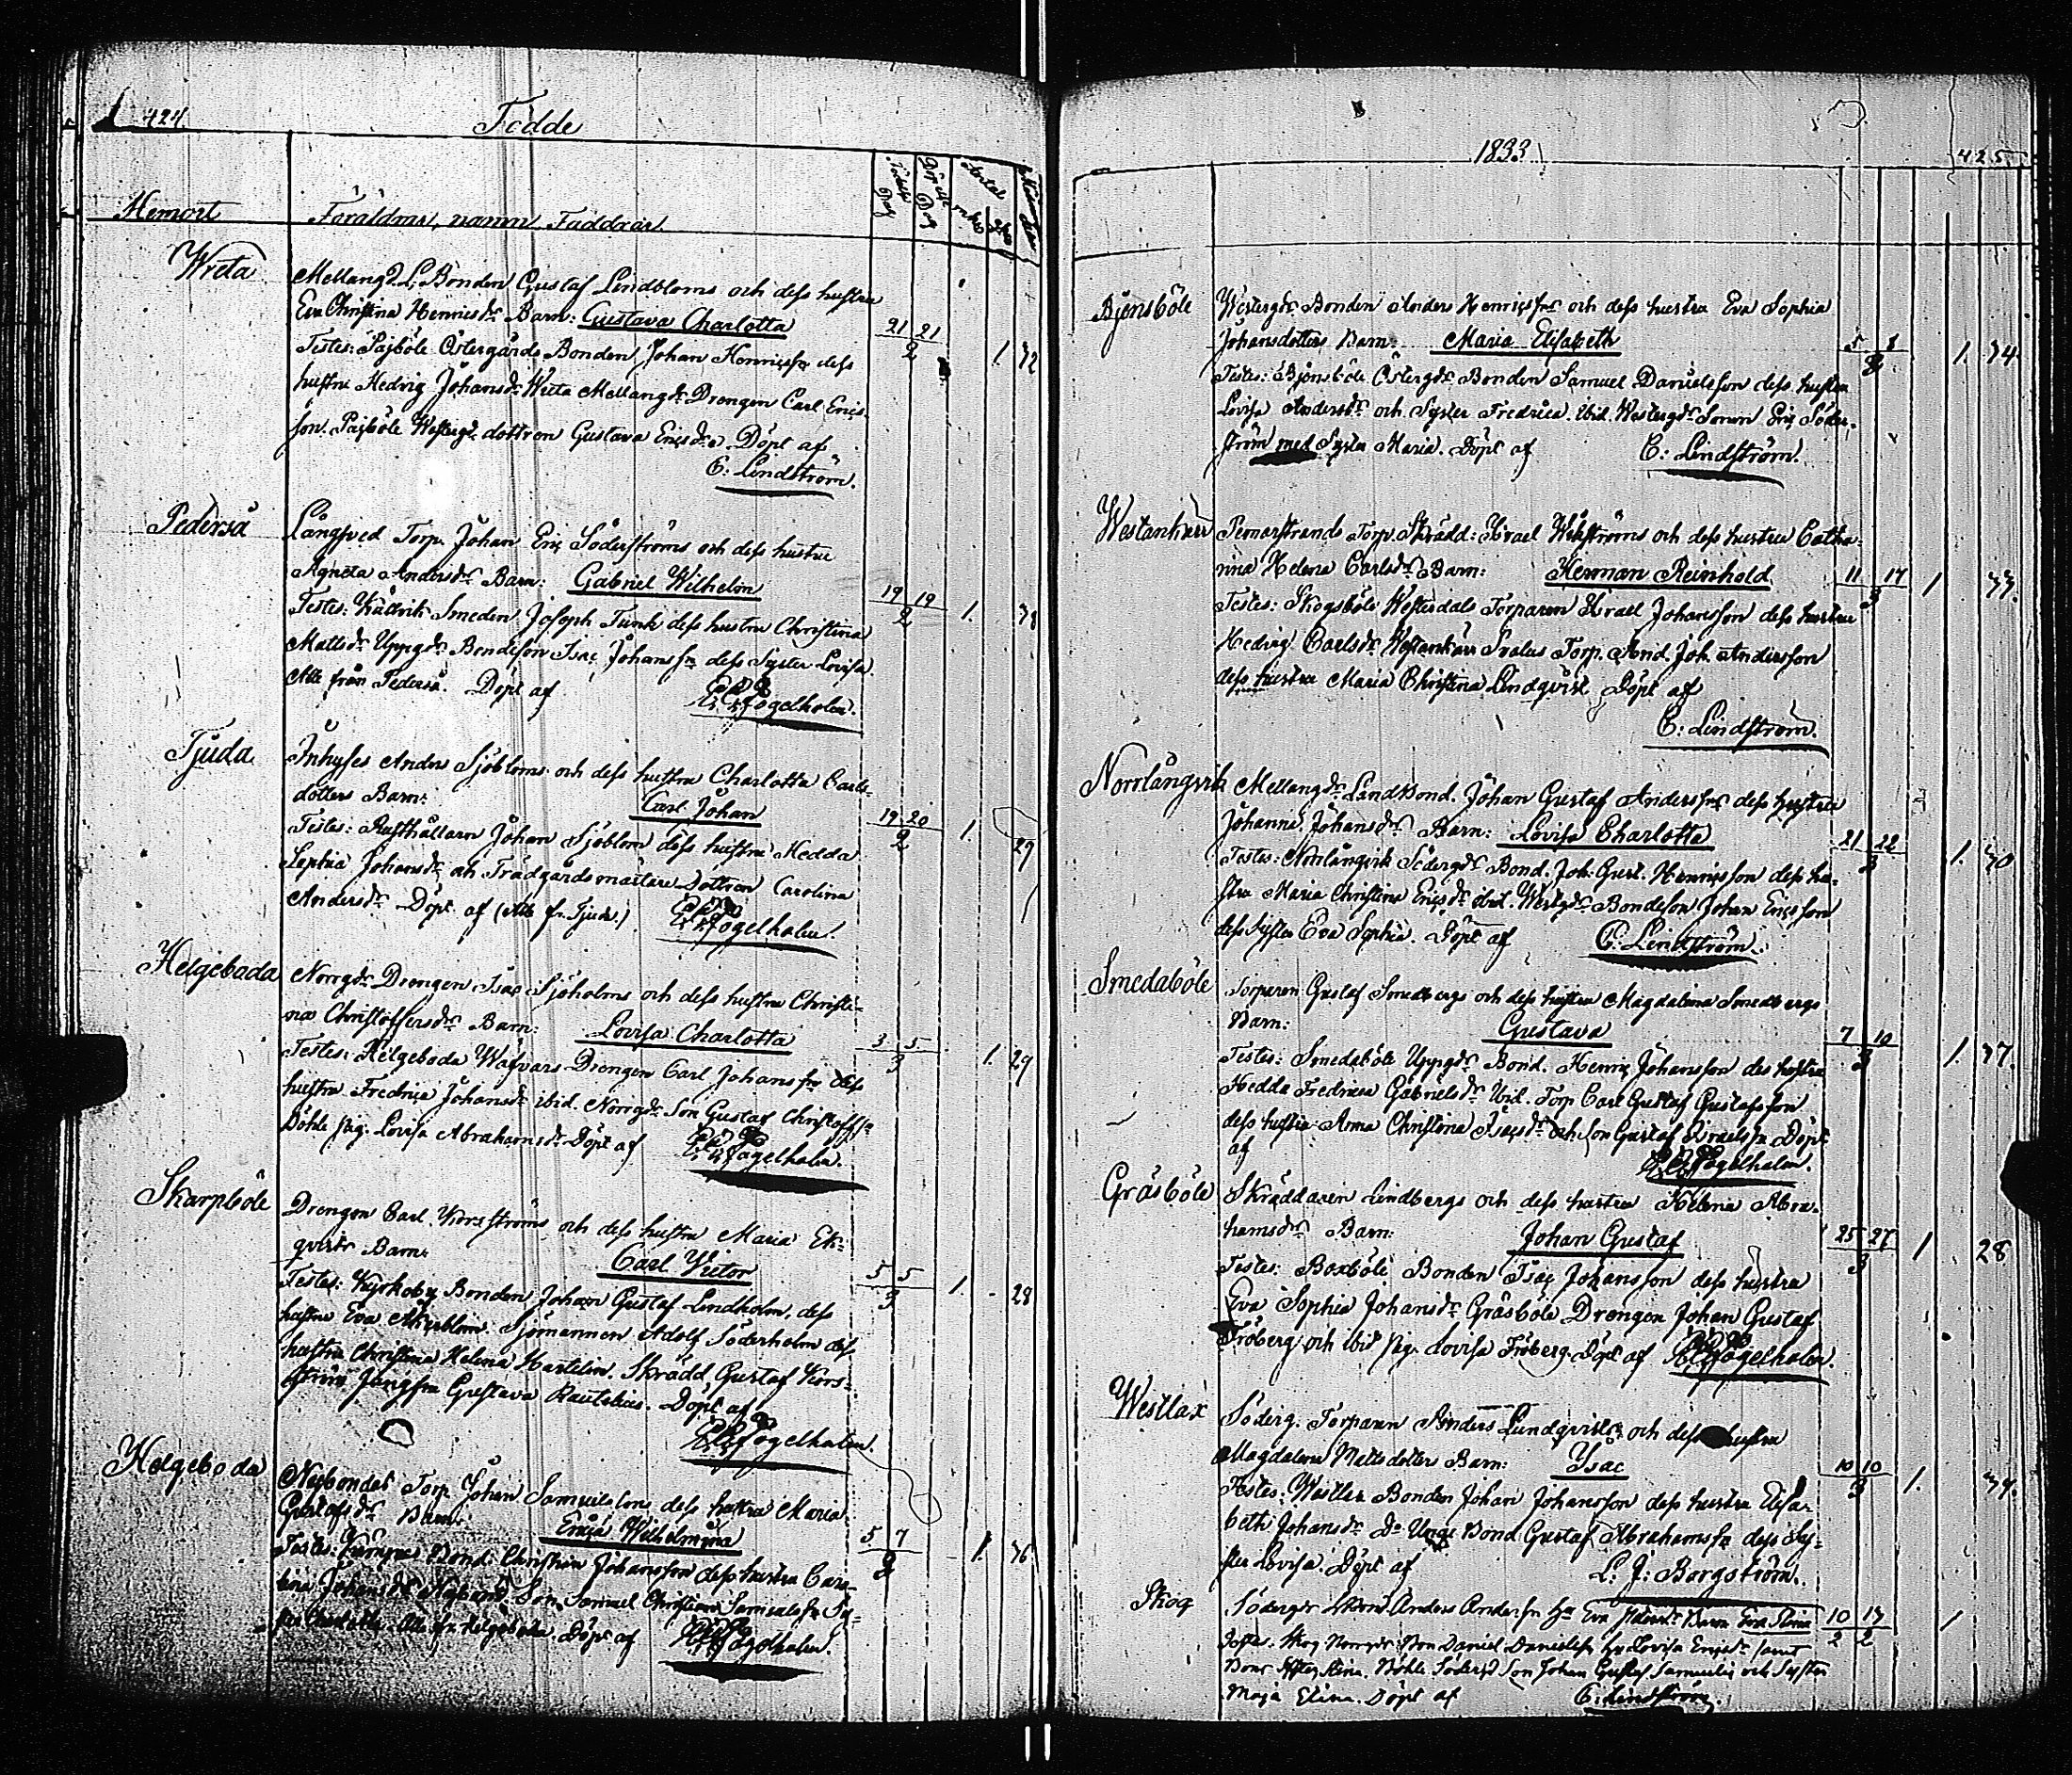 424 Födde
Hemort Föräldrar, namn, Faddrar.
Födelse Dag Döpelse Dag
Wreta
Mellangd. L. Bonden Gustaf Lindbloms och dess hustru
Eva Christina Henricsdr Barn: Gustava Charlotta 21 21
Testes: Pajböle Östergårds Bonden Johan Henricssn dess 2 1. 32
hustru Hedvig Johansdr Wreta Mellangds Drengen Carl Erics-
son. Pajböle Westergds dottren Gustava Ericsdr. Döpt af
C: Lindström.
Pederså
Långfved Torp. Johan Eric Söderströms och dess hustru
Agneta Andersdr Barn: Gabriel Wilhelm 19 19
Testes: Smeden Joseph Funk dess hustru Christina 2 1. 38
Mattsdr Uppgds Bondeson Isac Johanssn dess Syster Lovisa.
Alle från Pederså. Döpt af Fogelholm.
Tjuda
Inhyses Anders Sjöbloms och dess hustru Charlotta Carls-
dotters Barn: Carl Johan 19 20
Testes: Rusthållarn Johan Sjöblom dess hustru Hedda 2 1. 29
Sophia Johansdr och Trädgårdsmästare Dottren Carolina
Andersdr Döpt af (Alle fr. Tjuda.) Fogelholm.
Helgeboda
Norrgds Drengen Isac Sjöholms och dess hustru Christi-
nas Christoffersdr Barn: Lovisa Charlotta 3 5
Testes: Helgeboda Wäfvars Drengen Carl Johanssn dess 3 1. 29
hustru Fredrica Johansdr ibid. Norrgds Son Gustaf Christoffssn
Böhle pig. Lovisa Abrahamsdr Döpt af Fogelholm.
Skarpböle
Drengen Carl Korsströms och dess hustru Maria Ek-
qvists Barn: Carl Victor 5 5
Testes: Kyrkoby Bonden Johan Gustaf Lindholm, dess 3 1. 28
hustru Eva Åkerblom. Sjömannen Adolf Söderholm dess
hustru Christina Helena Hartelin. Skrädd. Gustaf Kors-
ström Jungfru Gustava Rautelius. Döpt af
Fogelholm.
Helgeboda
Nybondas Torp. Johan Samuelssons dess hustru Maria
Gustafsdr Barn: Erica Wilhelmina 5 7
Testes: Bond. Christian Johansson dess hustru Caro- 3 1. 36
lina Johansdr Son Samuel Christian Samuelssn Sy-
ster Charlotta. Alle fr. Helgeboda. Döpt af Fogelholm.
1833 425
Björsböle
Westergds Bonden Anders Henricssns och dess hustru Eva Sophia
Johansdotters Barn Maria Elisabeth 5 8
Testes: Björsböle Östergds Bonden Samuel Danielsson dess hustru 3 1. 34
Lovisa Andersdr och Syster Fredrica. ibid. Westergds Sonen Eric Söder-
ström med Syster Maria. Döpt af C: Lindström.
Westankärr
Pemarstrands Torp. Skrädd: Israel Wikströms och dess hustru Catha-
rina Helena Carlsdr Barn: Herman Reinhold 11 17
Testes: Skogsböle Westerdals Torparen Israel Johansson dess hustru 3 1 33.
Hedvig Carlsdr Westankärr Torp. And. Joh. Andersson
dess hustru Maria Christina Lindqvist Döpt af
C: Lindström.
Norrlångvik
Mellangds Landbond. Johan Gustaf Anderssns dess hustru
Johanna Johansdr Barn: Lovisa Charlotta 21 22
Testes: Norrlångvik Södergds Bond. Joh. Gust. Henricsson dess hu- 3 1. 30
stru Maria Christina Ericsdr ibid. Westgds Bondeson Johan Ericsson
dess syster Eva Sophia. Döpt af C: Lindström.
Smedaböle
Torparen Gustaf Smedbergs och dess hustru Magdalena Smedbergs
Barn: Gustava 7 10
Testes: Smedaböle Uppgds Bond. Henric Johansson des hustru 3 1. 37.
Hedda Fredrica Gabrielsdr ibid. Torp Carl Gustaf Gustafsson
dess hustru Anna Christina Isacsdr och son Gustaf Israelssn Döpt
af Fogelholm.
Gräsböle
Skräddaren Lindbergs och dess hustru Helena Abra-
hamsdr Barn: Johan Gustaf 25 27
Testes: Boxböle Bonden Isac Johansson dess hustru 3 1. 28
Eva Sophia Johansdr Gräsböle Drengen Johan Gustaf
Fröberg och ibid pig. Lovisa Fröberg. Döpt af Fogelholm.
Westlax
Söderg. Torparen Anders Lundqvists och dess hustru
Magdalena Mattsdotters Barn: Isac 10 10
Testes: Westlax Bonden Johan Johansson dess hustru Elisa- 3 1. 34.
beth Johansdr Do Unge Bond. Gustaf Abrahamssn dess Sy-
ster Lovisa. Döpt af L. J: Borgström.
Skog
Södergds Anders Anderssn hu Eva Barn Eva Stina 10 13
Testes: Skog Norrgds Bon Daniel Danielssn hu Lovisa Ericsdr samt 2 2 1
Stina. Böhle Södergd Son Johan Gustaf Samuelss och Syster
Maja Elina. Döpt af C. Lindström.